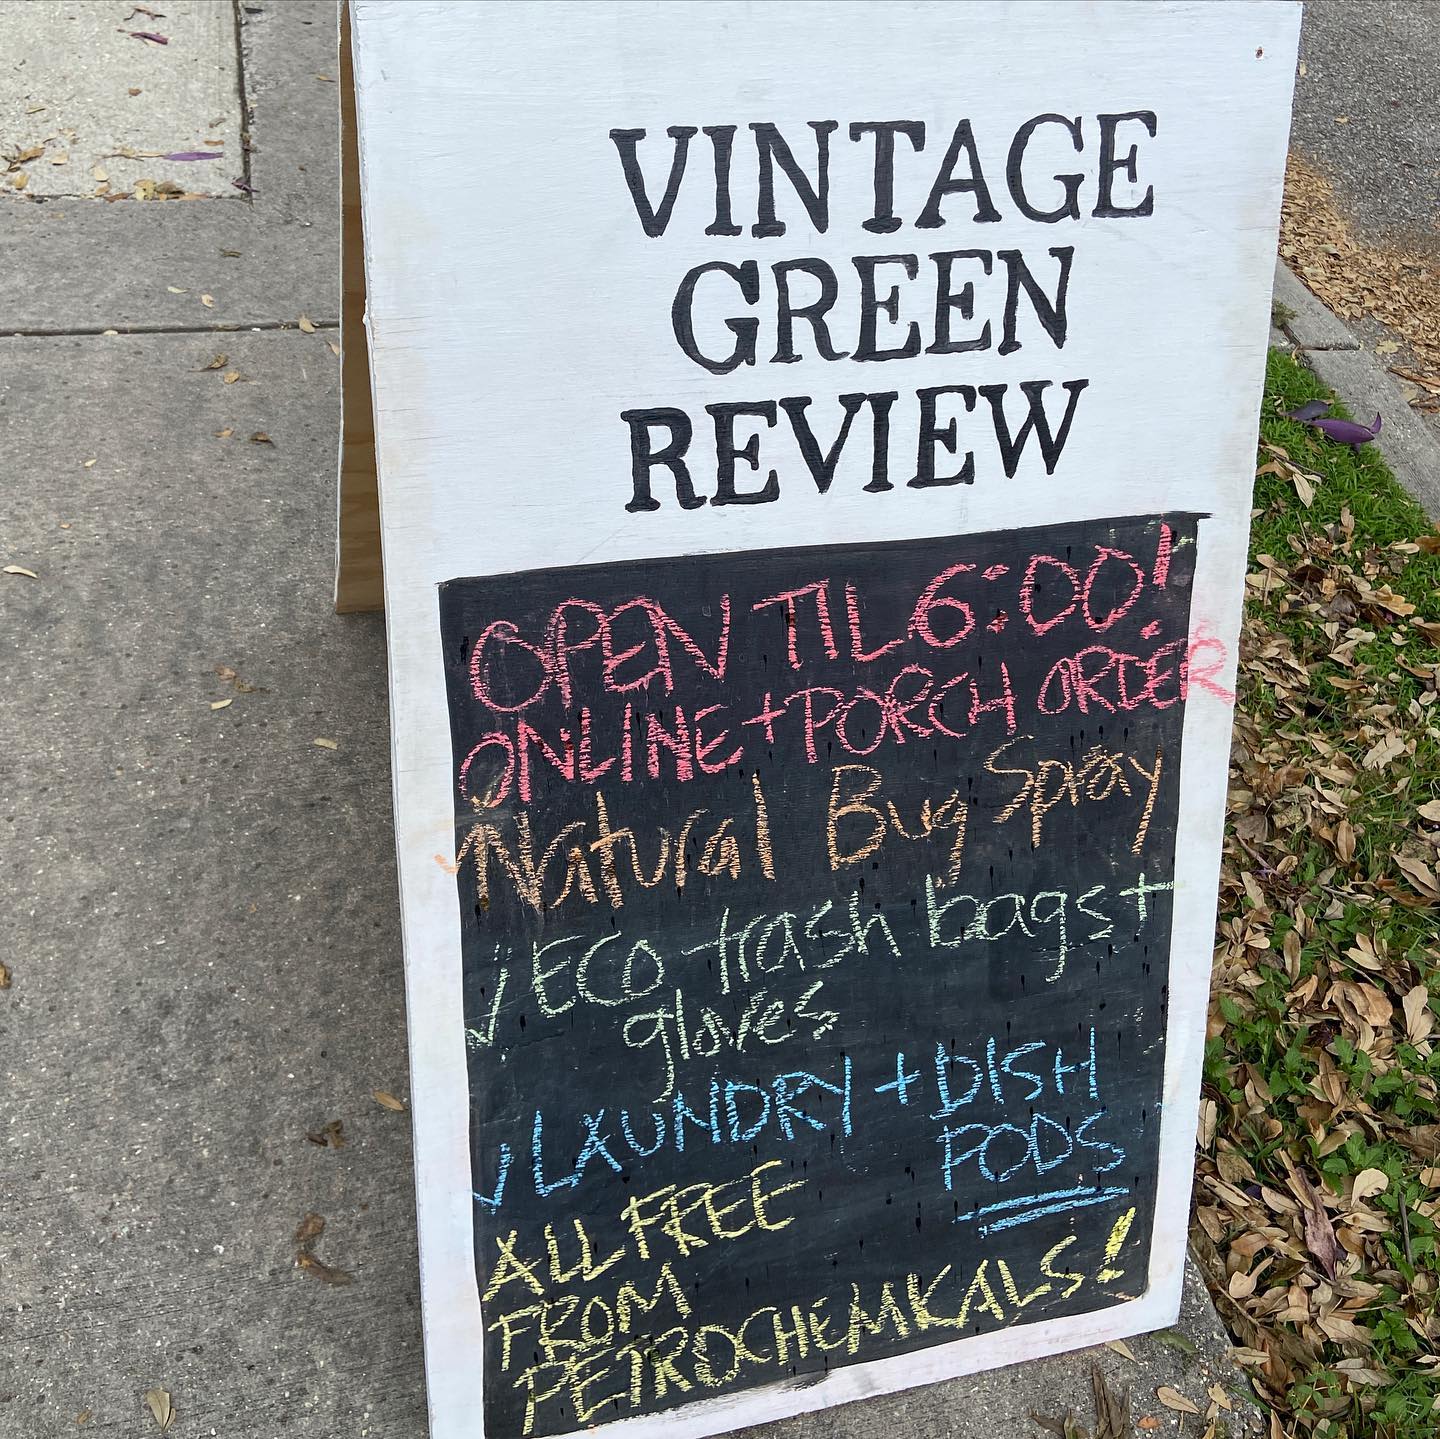 VINTAGE
GREEN
REVIEW
OPEN TIL 6:00!
ONLINE + PORCH ORDER
✓ Natural Bug Spray
✓ ECO trash bags +
gloves
✓ LAUNDRY + DISH
PODS
ALL FREE
FROM
PETROCHEMKALS!